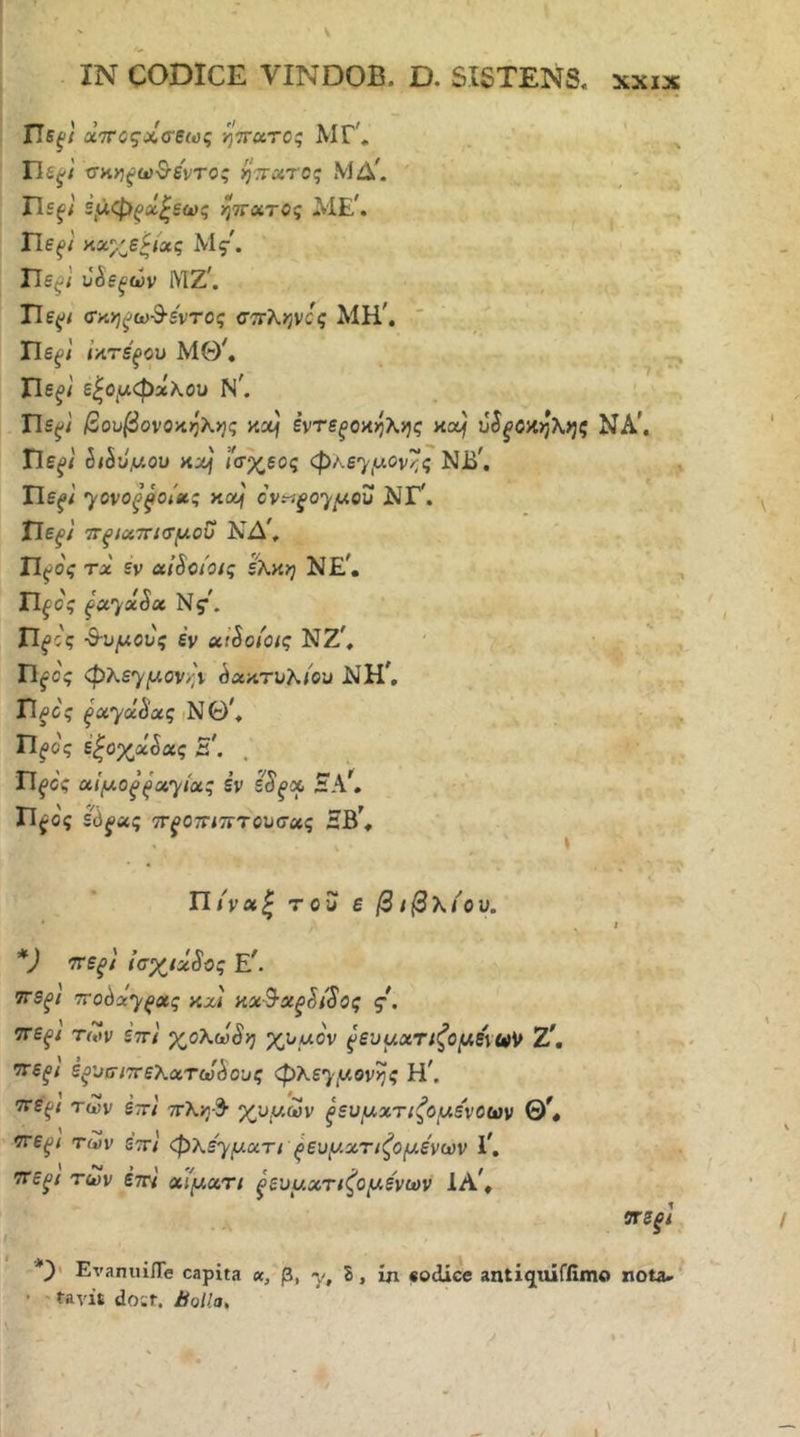 IN CODICE VINDOB. D. SISTENS. xxix
Περὶ ἀποςάσεως ἥπατος ΜΓ'.
Περὶ σκηρωθέντος ἥπατος ΜΔ'.
Περὶ ἐμφράξεως ἥπατος ΜΕ'.
Περὶ καχεξίας Μς'.
Περὶ ὑδερῶν ΜΖ'.
Περι σκηρωθέντος σπληνὸς ΜΗ'.
Περὶ ἰκτέρου ΜΘ'.
Περὶ ἐξομφάλου Ν'.
Περὶ βουβονοκήλης καὶ ἐντεροκήλης καὶ ὑδροκήλης ΝΑ'.
Περὶ διδύμου καὶ ἴσχεος φλεγμονῆς ΝΒ'.
Περὶ γονοῤῥοίας καὶ ὀνειρογμοῦ ΝΓ'.
Περὶ πριαπισμοῦ ΝΔ'.
Πρὸς τὰ ἐν αἰδοίοις ἕλκη ΝΕ'.
Πρὸς ῥαγάδα Νς'.
Πρὸς θυμοὺς ἐν αἰδοίοις ΝΖ'.
Πρὸς φλεγμονὴν δακτυλίου ΝΗ'.
Πρὸς ῥαγάδας ΝΘ'.
Πρὸς ἐξοχάδας Ξ'.
Πρὸς αἱμοῤῥαγίας ἐν ἕδρᾳ ΞΑ'.
Πρὸς ἕδρας προπιπτουσας ΞΒ'.
Πίναξ τοῦ ε βιβλίου.
*) περὶ ἰσχιάδος Ε'.
περὶ ποδάγρας καὶ καθαρδίδος ς'.
περὶ τῶν ἐπὶ χολώδη χυμὸν ῥευματιζομένων Ζ'.
περὶ ἐρυσιπελατώδους φλεγμονῆς Η'.
περὶ τῶν ἐπὶ πληθ χυμῶν ῥευματιζομένοων Θ'.
περὶ τῶν ἐπὶ φλέγματι ῥευματιζομένων Ι'.
περὶ τῶν ἐπὶ αἵματι ῥευματιζομένων ΙΑ'.
περὶ
*) Evanuiſſe capita α, β, γ, δ, in codice antiquiſſimo nota-
tavit doct. Bolla.